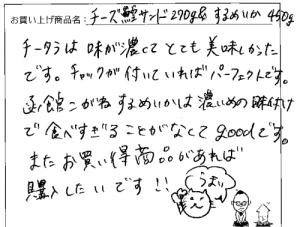 お買い上げ商品名:チーズ鱈サンド270g& するめいか 450g
チータラは味が濃くてとても美味しかった
です。チャックが付いていればパーフェクトです。
函館こがねするめいかは濃いめの味付け
で食べすぎることがなくてgoodです。
またお買い得商品があれば
購入したいです!!
うまい